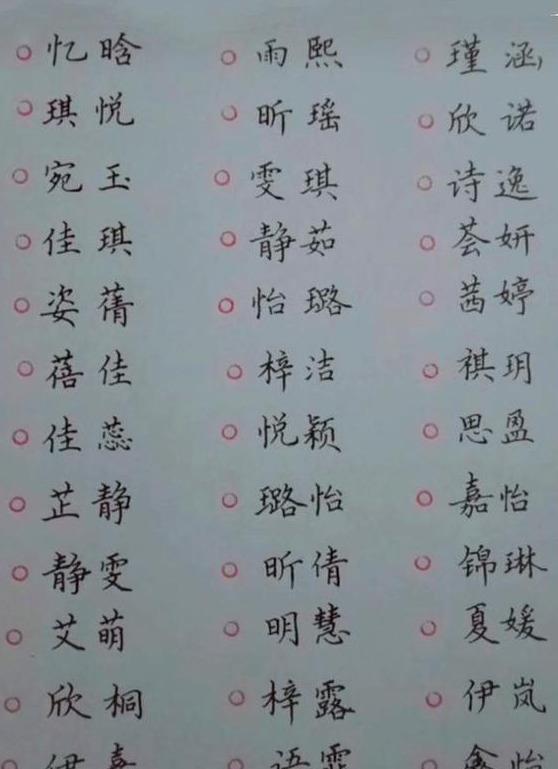 忆晗 雨熙 瑾涵
琪悦 昕瑶 欣诺
宛玉 雯琪 诗逸
佳琪 静茹 荟妍
姿蒨 怡璐 茜婷
蓓佳 梓洁 祺玥
佳蕊 悦颖 思盈
芷静 璐怡 嘉怡
静雯 昕倩 锦琳
艾萌 明慧 夏媛
欣桐 梓露 伊岚
伊嘉 语霏 鑫怡